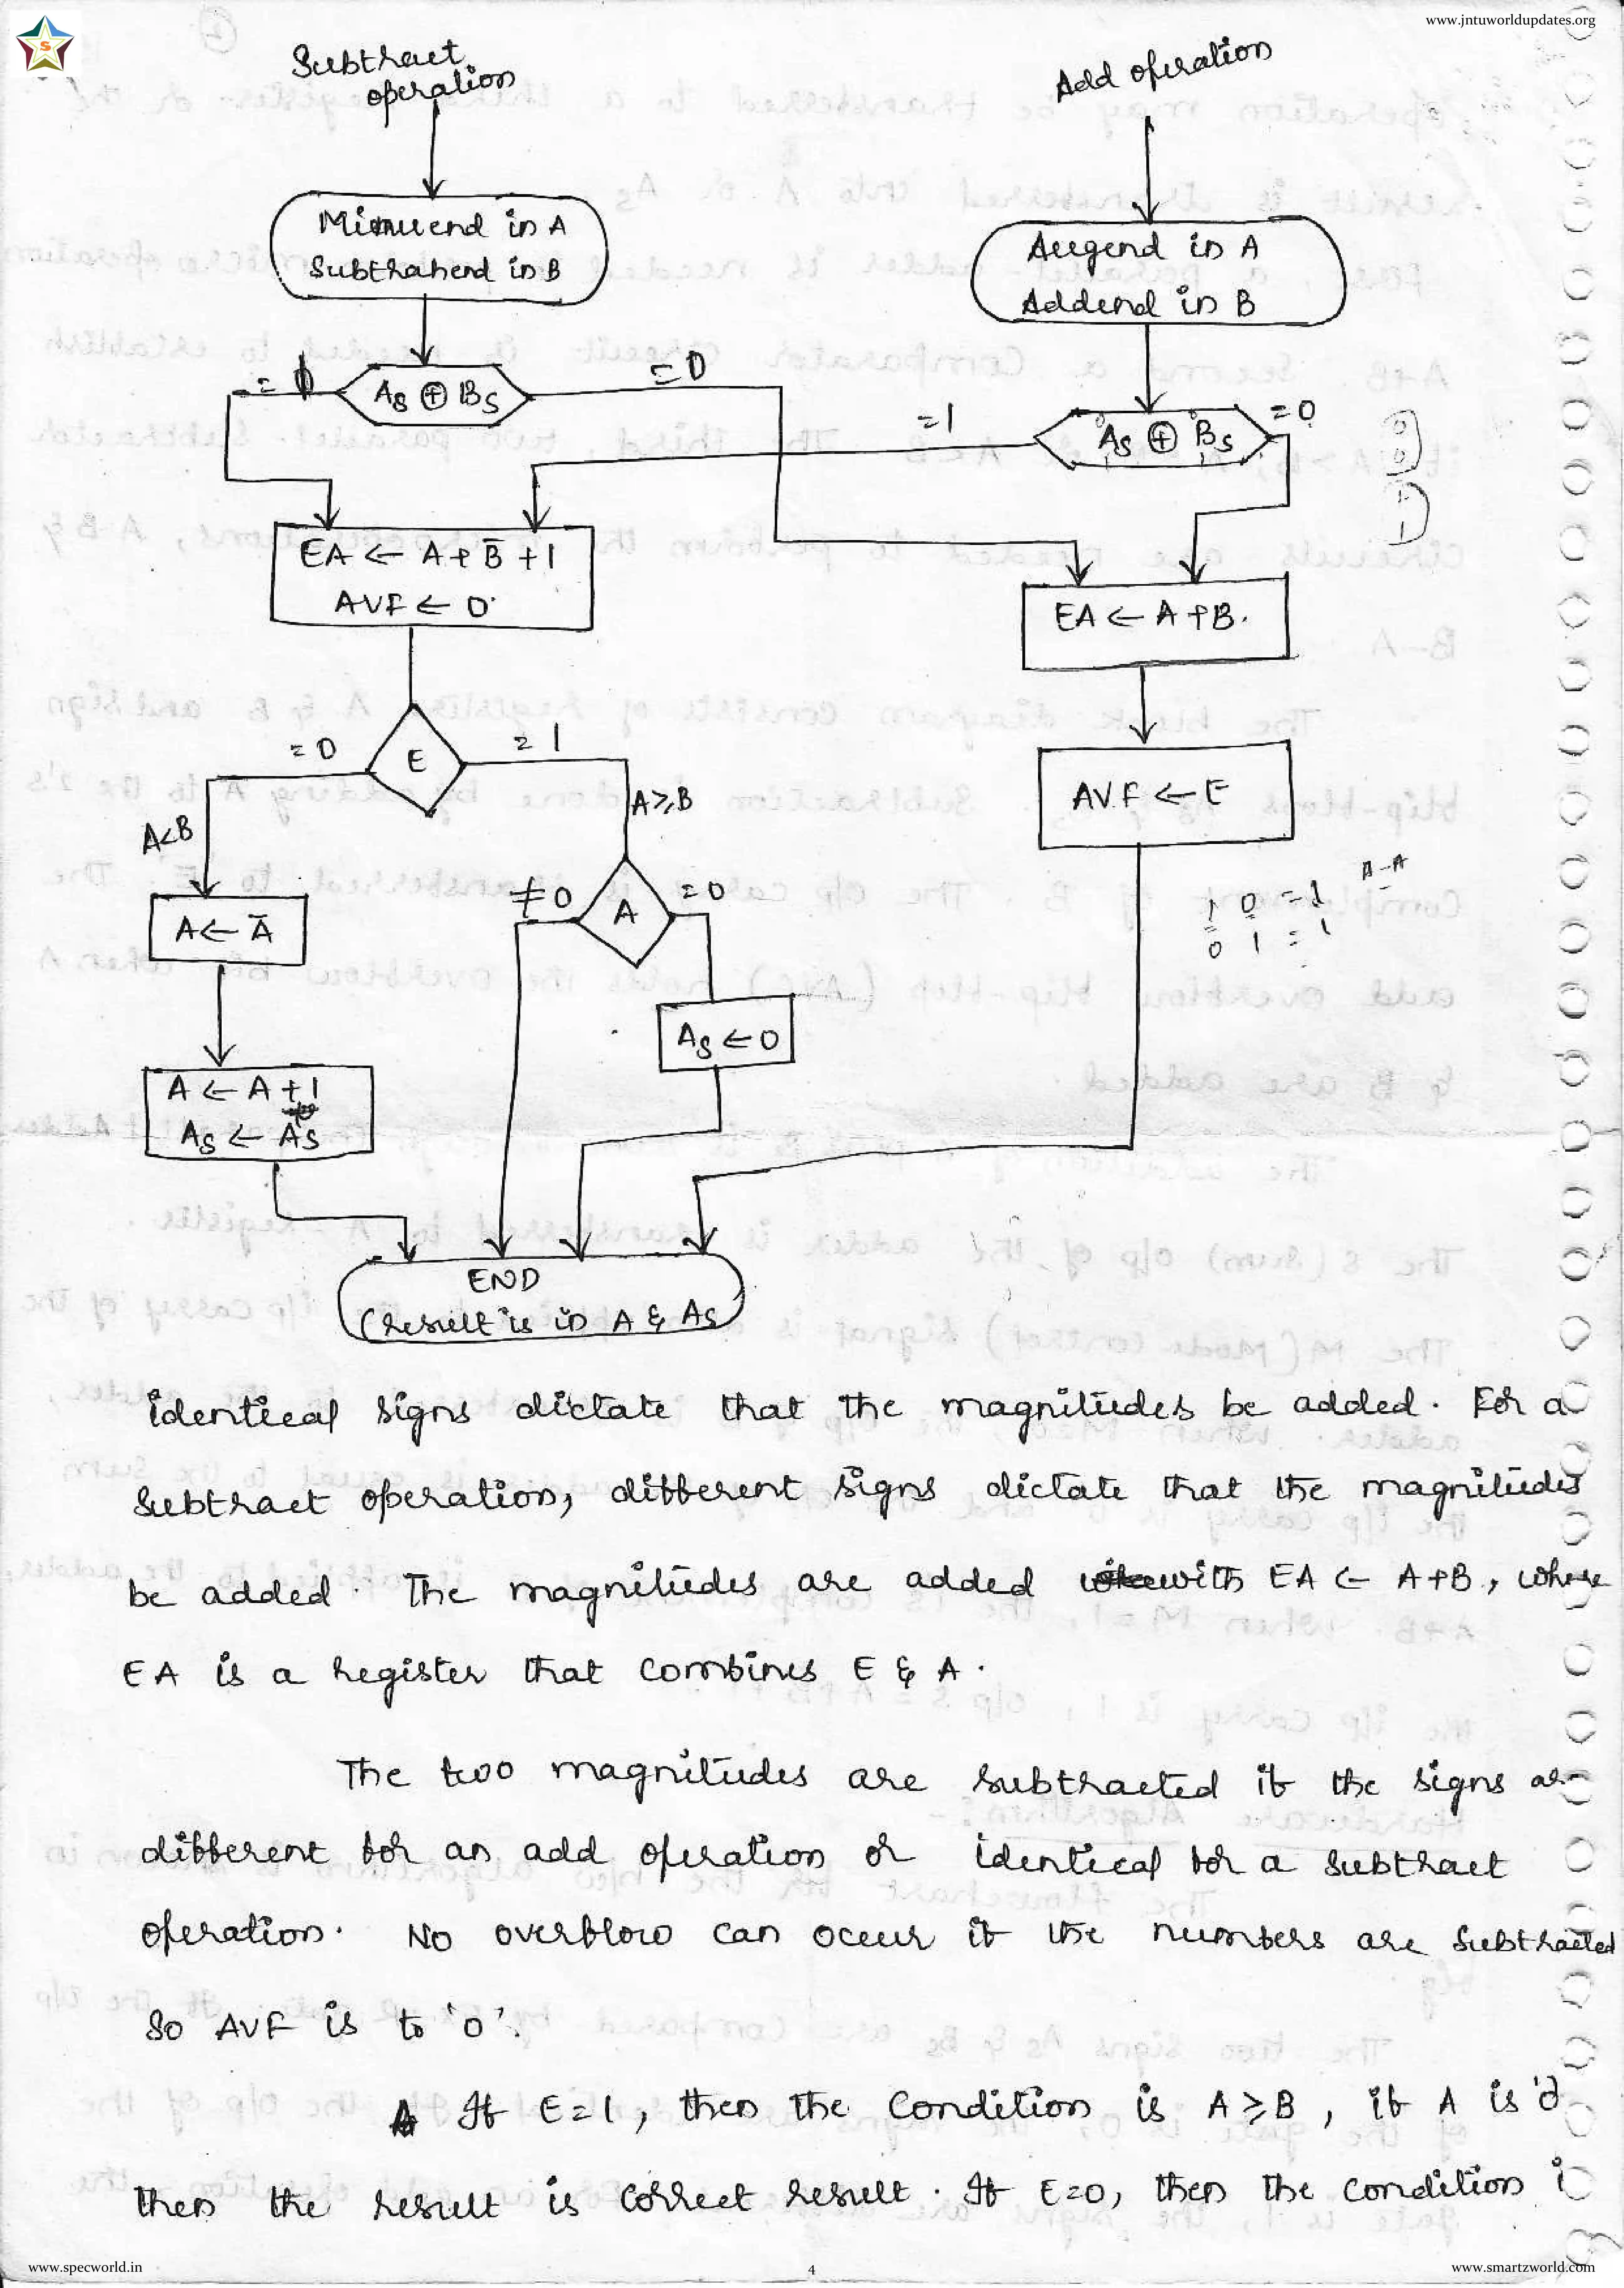 www.jntuworldupdates.org
S
Subtract
operation
Add operation
Minuend in A
Subtrahend in B
Augend in A
Addend in B
As ⊕ Bs
= 0
= 1
As ⊕ Bs
= 0
EA ← A + B̅ + 1
AVF ← 0
EA ← A + B.
E
= 0
= 1
A<B
A≥B
AVF ← E
A ← A̅
≠ 0
A
= 0
A-A
1 0 = 1
0 1 = 1
As ← 0
A ← A + 1
As ← A̅s
END
(result is in A & As
identical signs dictate that the magnitudes be added. For a
subtract operation, different signs dictate that the magnitudes
be added. The magnitudes are added with EA ← A+B, where
EA is a register that combines E & A.
The two magnitudes are subtracted if the signs are
different for an add operation or identical for a subtract
operation. No overflow can occur if the numbers are subtracted
so AVF is to '0'.
If E=1, then the condition is A ≥ B, if A is '0
then the result is correct result. If E=0, then the condition i
www.specworld.in
4
www.smartzworld.com